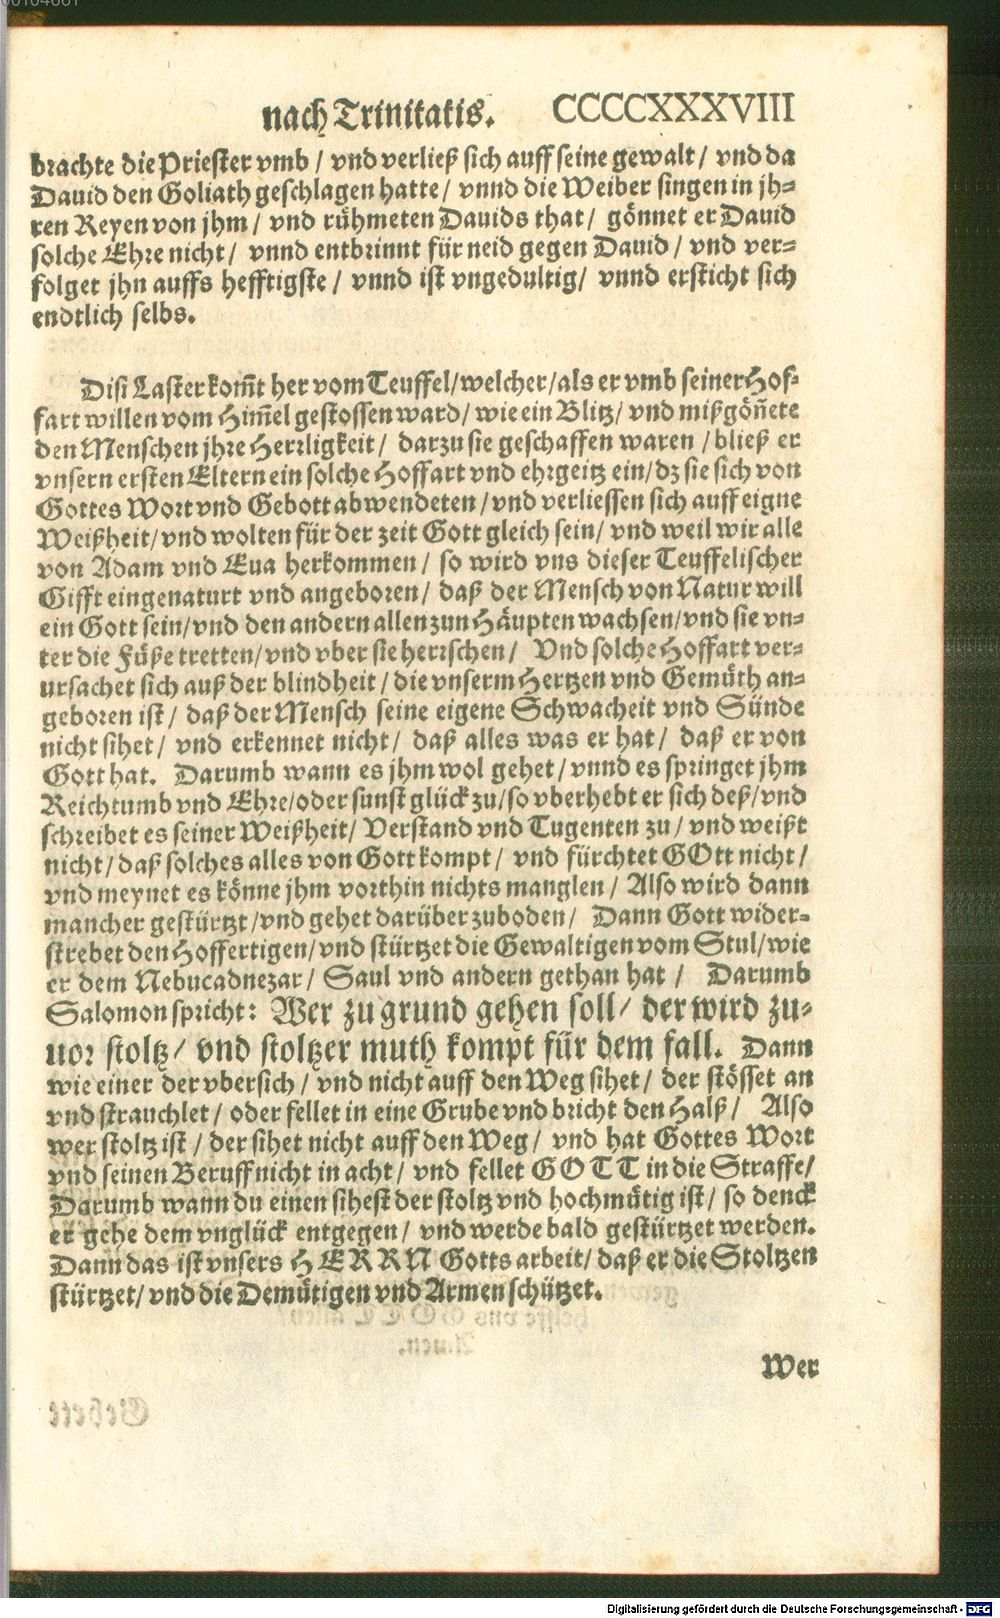 nach Trinitatis. CCCCXXXVIII
brachte die Priester vmb / vnd verließ sich auff seine gewalt / vnd da
Dauid den Goliath geschlagen hatte / vnnd die Weiber singen in jh=
ren Reyen von jhm / vnd rühmeten Dauids that / gönnet er Dauid
solche Ehre nicht / vnnd entbrinnt für neid gegen Dauid / vnd ver=
folget jhn auffs hefftigste / vnnd ist vngedultig / vnnd ersticht sich
endtlich selbs.
Diß Laster kom̃t her vom Teuffel / welcher / als er vmb seiner Hof=
fart willen vom Him̃el gestossen ward / wie ein Blitz / vnd mißgöñete
den Menschen jhre Herrligkeit / darzu sie geschaffen waren / bließ er
vnsern ersten Eltern ein solche Hoffart vnd ehrgeitz ein / dz sie sich von
Gottes Wort vnd Gebott abwendeten / vnd verliessen sich auff eigne
Weißheit / vnd wolten für der zeit Gott gleich sein / vnd weil wir alle
von Adam vnd Eua herkommen / so wird vns dieser Teuffelischer
Gifft eingenaturt vnd angeboren / daß der Mensch von Natur will
ein Gott sein / vnd den andern allen zun Häupten wachsen / vnd sie vn=
ter die Füße tretten / vnd vber sie herrschen / Vnd solche Hoffart ver=
ursachet sich auß der blindheit / die vnserm Hertzen vnd Gemüth an=
geboren ist / daß der Mensch seine eigene Schwacheit vnd Sünde
nicht sihet / vnd erkennet nicht / daß alles was er hat / daß er von
Gott hat. Darumb wann es jhm wol gehet / vnnd es springet jhm
Reichtumb vnd Ehre / oder sunst glück zu / so vberhebt er sich deß / vnd
schreibet es seiner Weißheit / Verstand vnd Tugenten zu / vnd weißt
nicht / daß solches alles von Gott kompt / vnd fürchtet GOtt nicht /
vnd meynet es könne jhm vorthin nichts manglen / Also wird dann
mancher gestürtzt / vnd gehet darüber zuboden / Dann Gott wider=
strebet den Hoffertigen / vnd stürtzet die Gewaltigen vom Stul / wie
er dem Nebucadnezar / Saul vnd andern gethan hat / Darumb
Salomon spricht: Wer zu grund gehen soll / der wird zu=
uor stoltz / vnd stoltzer muth kompt für dem fall. Dann
wie einer der vbersich / vnd nicht auff den Weg sihet / der stösset an
vnd strauchlet / oder fellet in eine Grube vnd bricht den Halß / Also
wer stoltz ist / der sihet nicht auff den Weg / vnd hat Gottes Wort
vnd seinen Beruff nicht in acht / vnd fellet GOTT in die Straffe /
Darumb wann du einen sihest der stoltz vnd hochmütig ist / so denck
er gehe dem vnglück entgegen / vnd werde bald gestürtzet werden.
Dann das ist vnsers HERRN Gotts arbeit / daß er die Stoltzen
stürtzet / vnd die Demütigen vnd Armen schützet.
Wer
Digitalisierung gefördert durch die Deutsche Forschungsgemeinschaft - DFG